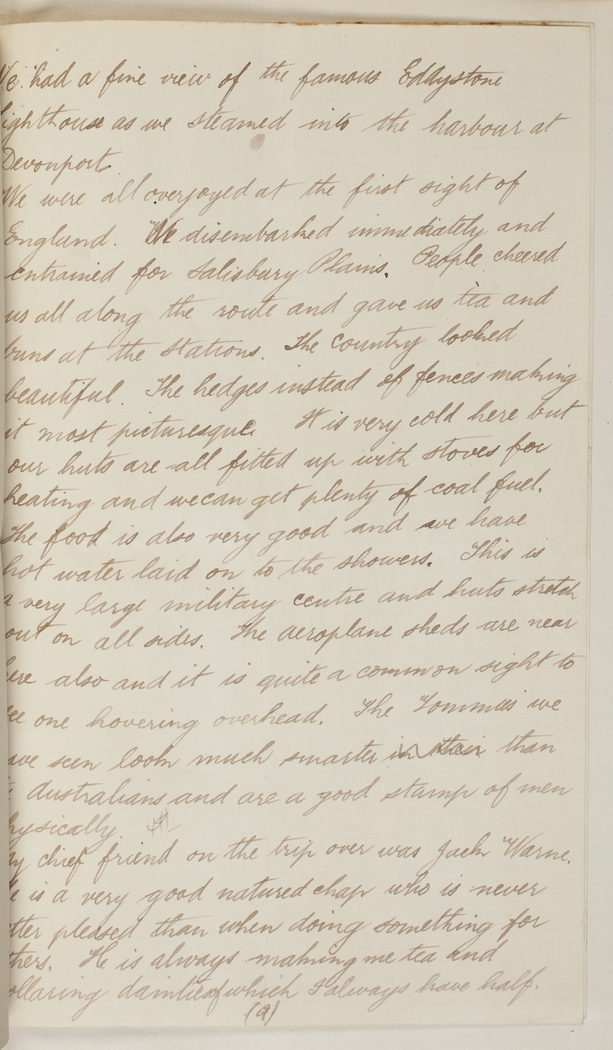 We had a fine view of the famous Eddystone
lighthouse as we steamed into the harbour at
Devonport.
We were all overjoyed at the first sight of
England. We disembarked immediately and
entrained for Salisbury Plains. People cheered
us all along the route and gave us tea and
buns at the stations. The country looked
beautiful. The hedges instead of fences making
it most picturesque. It is very cold here but
our huts are all fitted up with stoves for
heating and we can get plenty of coal fuel.
The food is also very good and we have
hot water laid on to the showers. This is
a very large military centre and huts stretch
out on all sides. The aeroplane sheds are near
here also and it is quite a common sight to
see one hovering overhead. The Tommies we
have seen look much smarter in their than
Australians and are a good stamp of men
physically
My chief friend on the trip over was Jack Warne.
He is a very good natured chap who is never
better pleased than when doing something for
others. He is always making me tea and
collaring dainties of which I always have half.
(9)